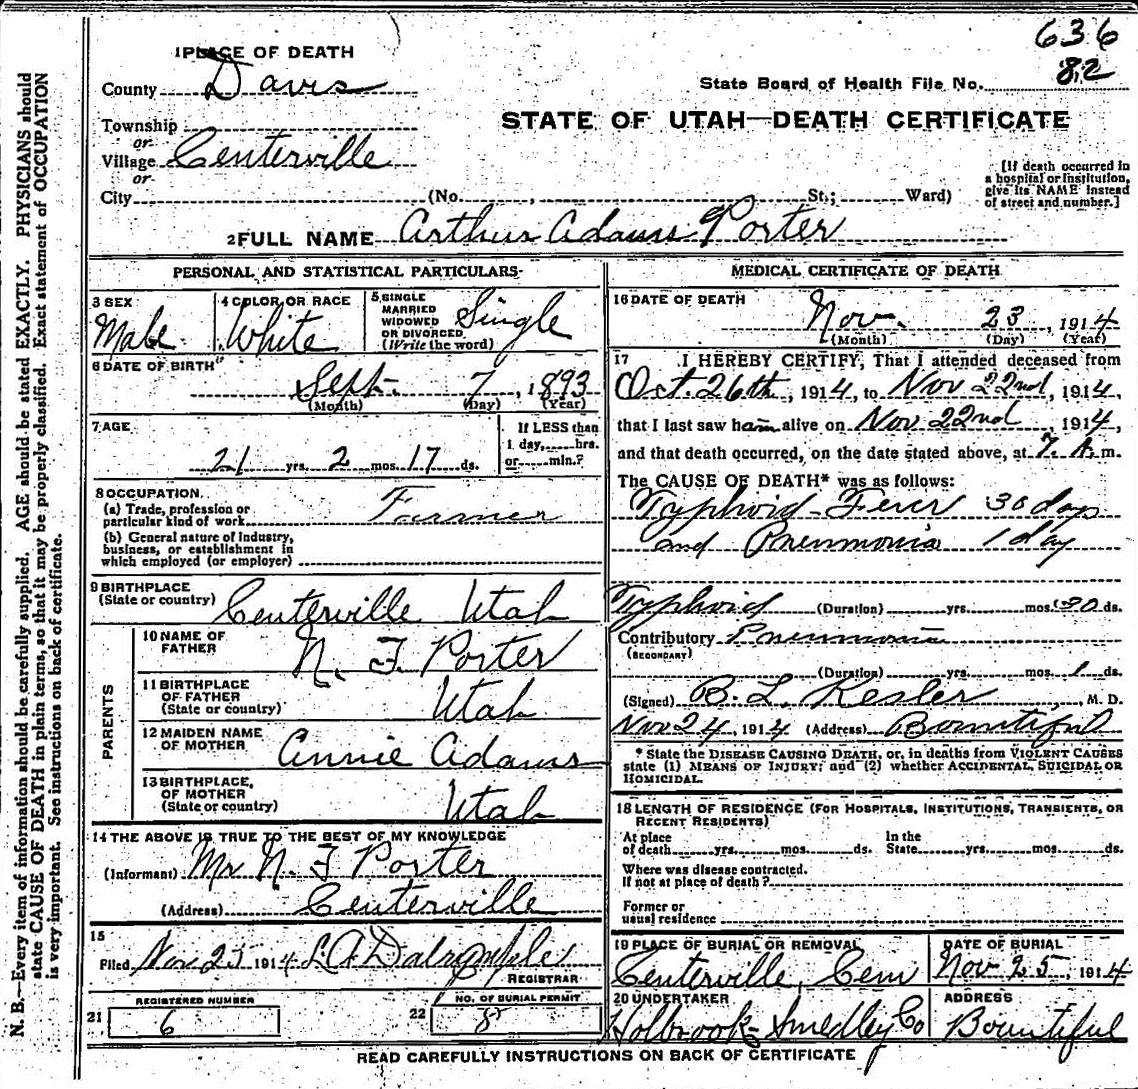 636
82
State Board of Health File No.
STATE OF UTAH—DEATH CERTIFICATE
1 PLACE OF DEATH
County Davis
Township
or
Village Centerville
or
City (No. , St.; Ward)
[If death occurred in a hospital or institution, give its NAME instead of street and number.]
2 FULL NAME Arthur Adams Porter
PERSONAL AND STATISTICAL PARTICULARS
3 SEX
Male
4 COLOR OR RACE
White
5 SINGLE
MARRIED
WIDOWED
OR DIVORCED
(Write the word)
Single
6 DATE OF BIRTH
Sept. 7, 1893
(Month) (Day) (Year)
7 AGE
21 yrs. 2 mos. 17 ds.
If LESS than
1 day, hrs.
or min.?
8 OCCUPATION
(a) Trade, profession or
particular kind of work Farmer
(b) General nature of Industry,
business, or establishment in
which employed (or employer)
9 BIRTHPLACE
(State or country) Centerville Utah
PARENTS
10 NAME OF
FATHER N. F Porter
11 BIRTHPLACE
OF FATHER
(State or country) Utah
12 MAIDEN NAME
OF MOTHER Annie Adams
13 BIRTHPLACE,
OF MOTHER
(State or country) Utah
14 THE ABOVE IS TRUE TO THE BEST OF MY KNOWLEDGE
(Informant) Mr N. F Porter
(Address) Centerville
15
Filed Nov 25 1914 L A Dalrymple
REGISTRAR
REGISTERED NUMBER
21 6
NO. OF BURIAL PERMIT
22 8
MEDICAL CERTIFICATE OF DEATH
16 DATE OF DEATH
Nov. 23, 1914
(Month) (Day) (Year)
17 I HEREBY CERTIFY, That I attended deceased from
Oct. 26th, 1914, to Nov 22nd, 1914,
that I last saw him alive on Nov 22nd, 1914,
and that death occurred, on the date stated above, at 7. A. m.
The CAUSE OF DEATH* was as follows:
Typhoid Fever 30 days
and Pneumonia 1 day
Typhoid (Duration) yrs. mos. 30 ds.
Contributory Pneumonia
(SECONDARY)
(Duration) yrs. mos. 1 ds.
(Signed) B. L. Kesler, M. D.
Nov 24, 1914 (Address) Bountiful
* State the DISEASE CAUSING DEATH, or, in deaths from VIOLENT CAUSES
state (1) MEANS OF INJURY; and (2) whether ACCIDENTAL, SUICIDAL OR
HOMICIDAL.
18 LENGTH OF RESIDENCE (FOR HOSPITALS, INSTITUTIONS, TRANSIENTS, OR
RECENT RESIDENTS)
At place
of death yrs. mos. ds.
In the
State yrs. mos. ds.
Where was disease contracted.
If not at place of death?
Former or
usual residence
19 PLACE OF BURIAL OR REMOVAL
Centerville, Cem
DATE OF BURIAL
Nov 25, 1914
20 UNDERTAKER
Holbrook-Smedley Co
ADDRESS
Bountiful
READ CAREFULLY INSTRUCTIONS ON BACK OF CERTIFICATE
N. B.—Every item of information should be carefully supplied. AGE should be stated EXACTLY. PHYSICIANS should
state CAUSE OF DEATH in plain terms, so that it may be properly classified. Exact statement of OCCUPATION
is very important. See instructions on back of certificate.